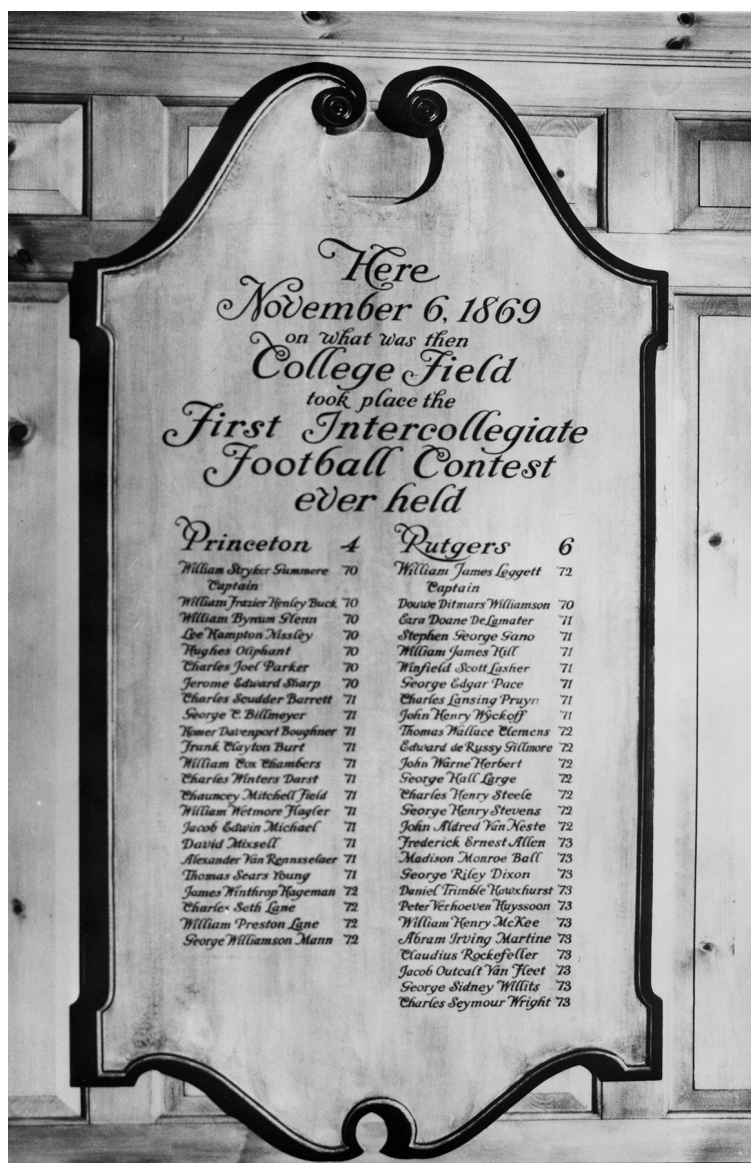 Here
November 6, 1869
on what was then
College Field
took place the
First Intercollegiate
Football Contest
ever held
Princeton 4
William Stryker Gummere '70
Captain
William Frazier Henley Buck '70
William Bynum Glenn '70
Lee Hampton Nissley '70
Hughes Oliphant '70
Charles Joel Parker '70
Jerome Edward Sharp '70
Charles Scudder Barrett '71
George C. Billmeyer '71
Homer Davenport Boughner '71
Frank Clayton Burt '71
William Cox Chambers '71
Charles Winters Darst '71
Chauncey Mitchell Field '71
William Wetmore Flagler '71
Jacob Edwin Michael '71
David Mixsell '71
Alexander Van Rennsselaer '71
Thomas Sears Young '71
James Winthrop Hageman '72
Charles Seth Lane '72
William Preston Lane '72
George Williamson Mann '72
Rutgers 6
William James Leggett '72
Captain
Douwe Ditmars Williamson '70
Ezra Doane DeLamater '71
Stephen George Gano '71
William James Hill '71
Winfield Scott Lasher '71
George Edgar Pace '71
Charles Lansing Pruyn '71
John Henry Wyckoff '71
Thomas Wallace Clemens '72
Edward de Russy Gillmore '72
John Warne Herbert '72
George Hall Large '72
Charles Henry Steele '72
George Henry Stevens '72
John Aldred Van Neste '72
Frederick Ernest Allen '73
Madison Monroe Ball '73
George Riley Dixon '73
Daniel Trimble Hawxhurst '73
Peter Verhoeven Huyssoon '73
William Henry McKee '73
Abram Irving Martine '73
Claudius Rockefeller '73
Jacob Outcalt Van Fleet '73
George Sidney Willits '73
Charles Seymour Wright '73